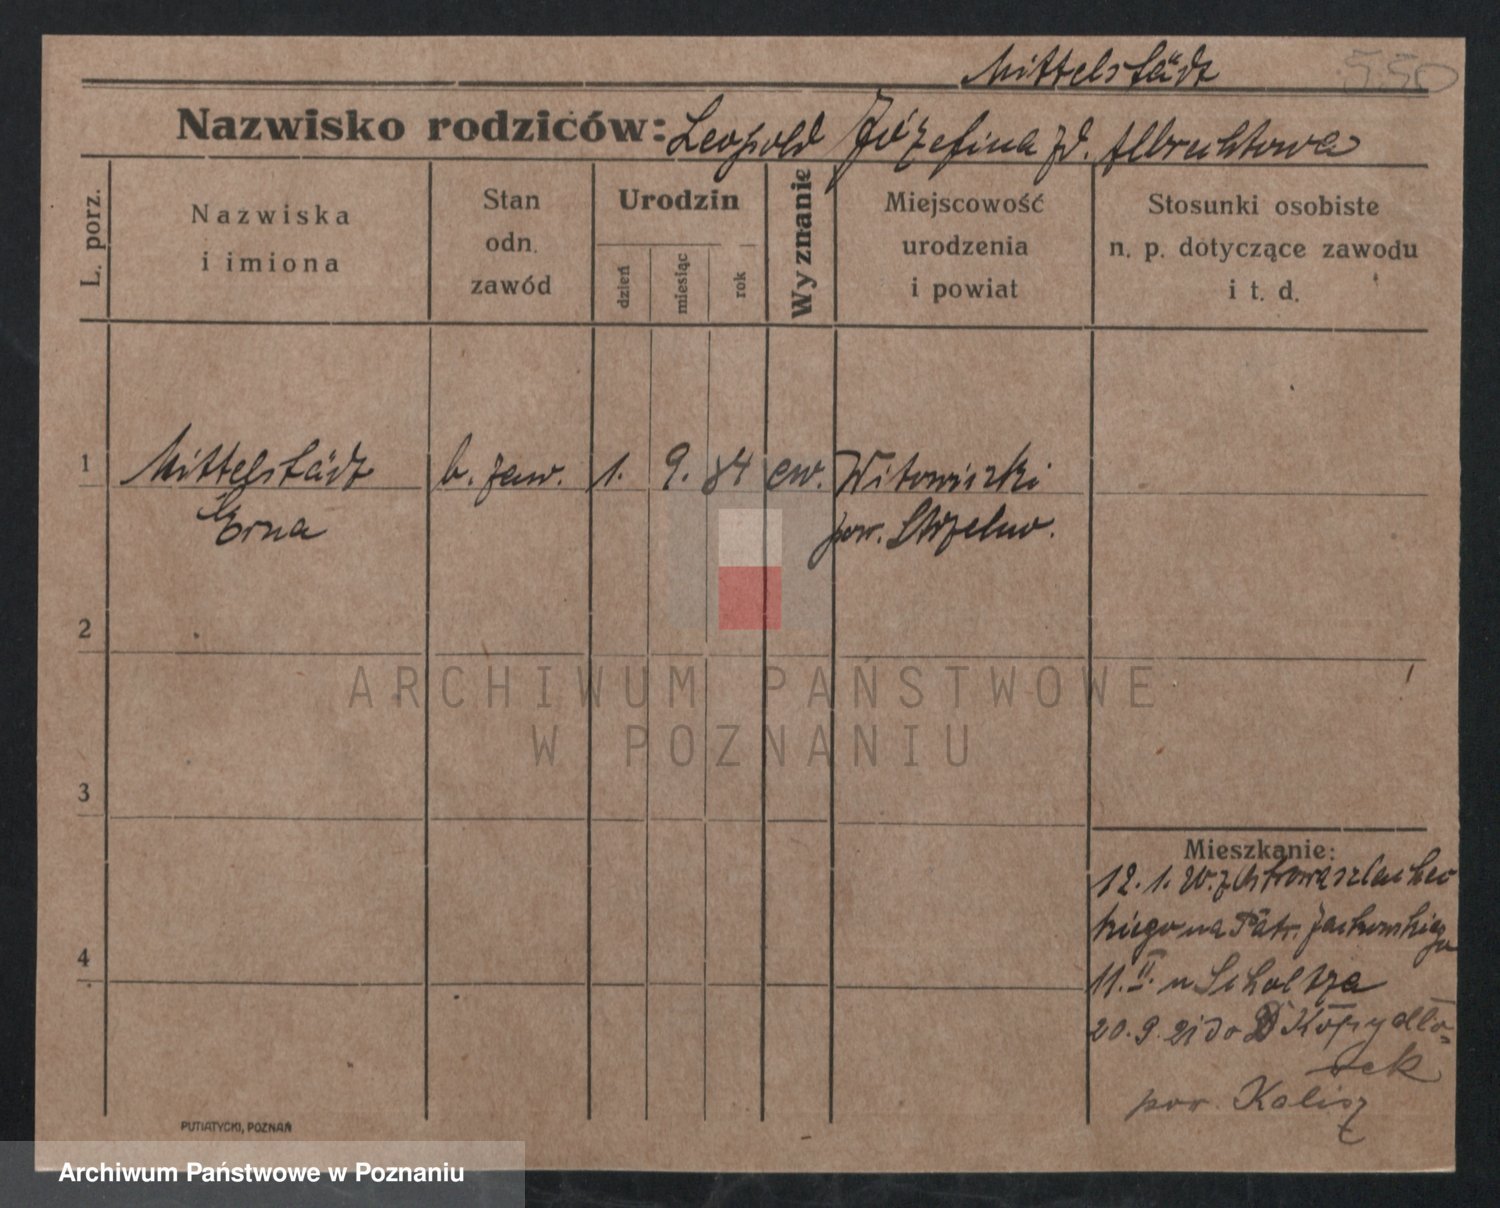 Mittelstädt 550
Nazwisko rodziców: Leopold Józefina zd. Albrechtowa
L. porz.
Nazwiska
i imiona
Stan
odn.
zawód
Urodzin
dzień
miesiąc
rok
Wyznanie
Miejscowość
urodzenia
i powiat
Stosunki osobiste
n. p. dotyczące zawodu
i t. d.
1 Mittelstädt b. zaw. 1. 9. 84 ew. Witowiczki
Erna pow. Strzelno.
2
ARCHIWUM PAŃSTWOWE
W POZNANIU
3
4
Mieszkanie:
12. 1. z Ostrowa szlachec
kiego na Patr. Jackowskiego
11. II. u Scholtza
20. 9. 21 do Kopydło-
wek
pow. Kalisz
PUTIATYCKI, POZNAŃ
Archiwum Państwowe w Poznaniu